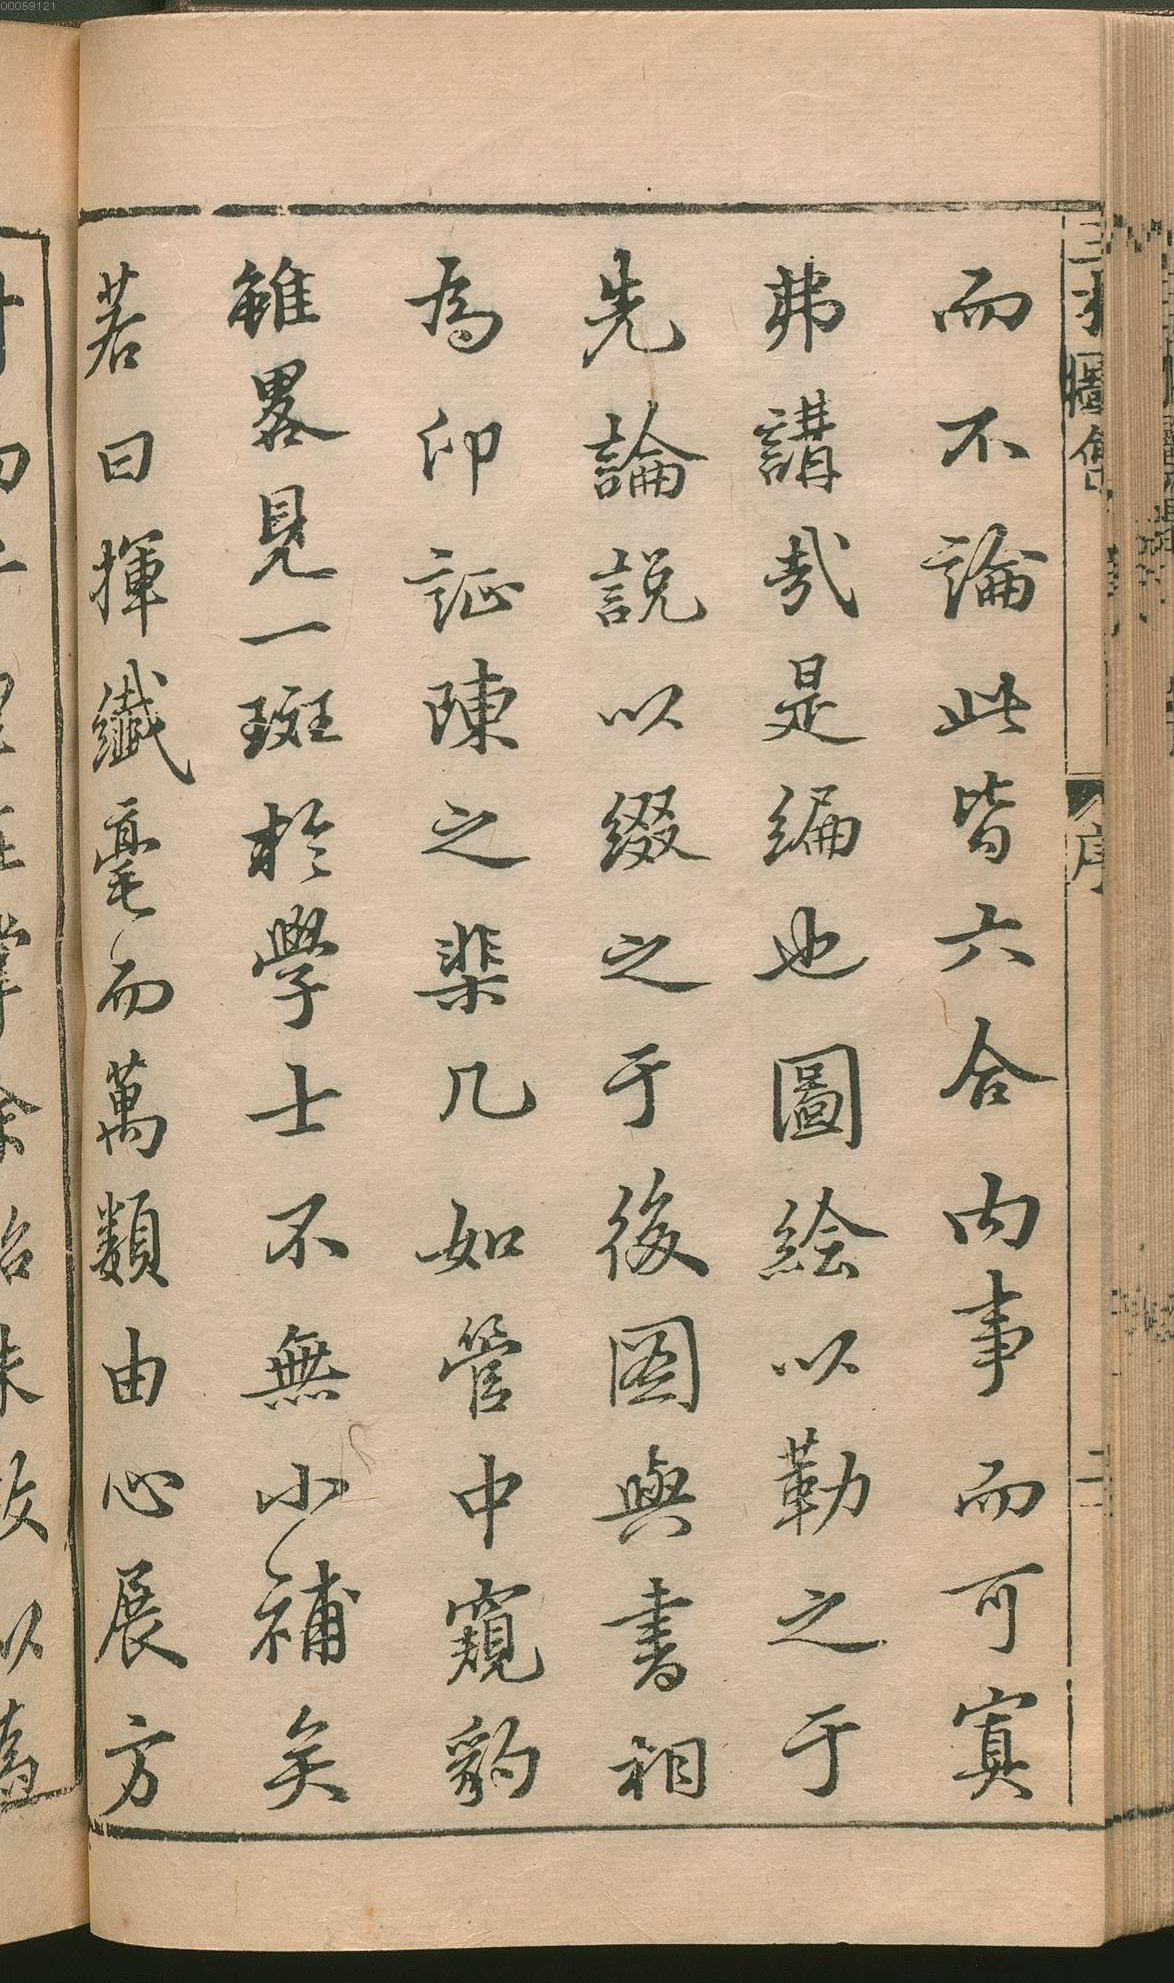 00059121
而不論此皆六合内事而可寘
弗講哉是編也圖繪以勒之于
先論説以綴之于後图與書相
為印証陳之棐几如管中窺豹
雖畧見一斑於學士不無小補矣
若曰揮纖毫而萬類由心展方
序
二